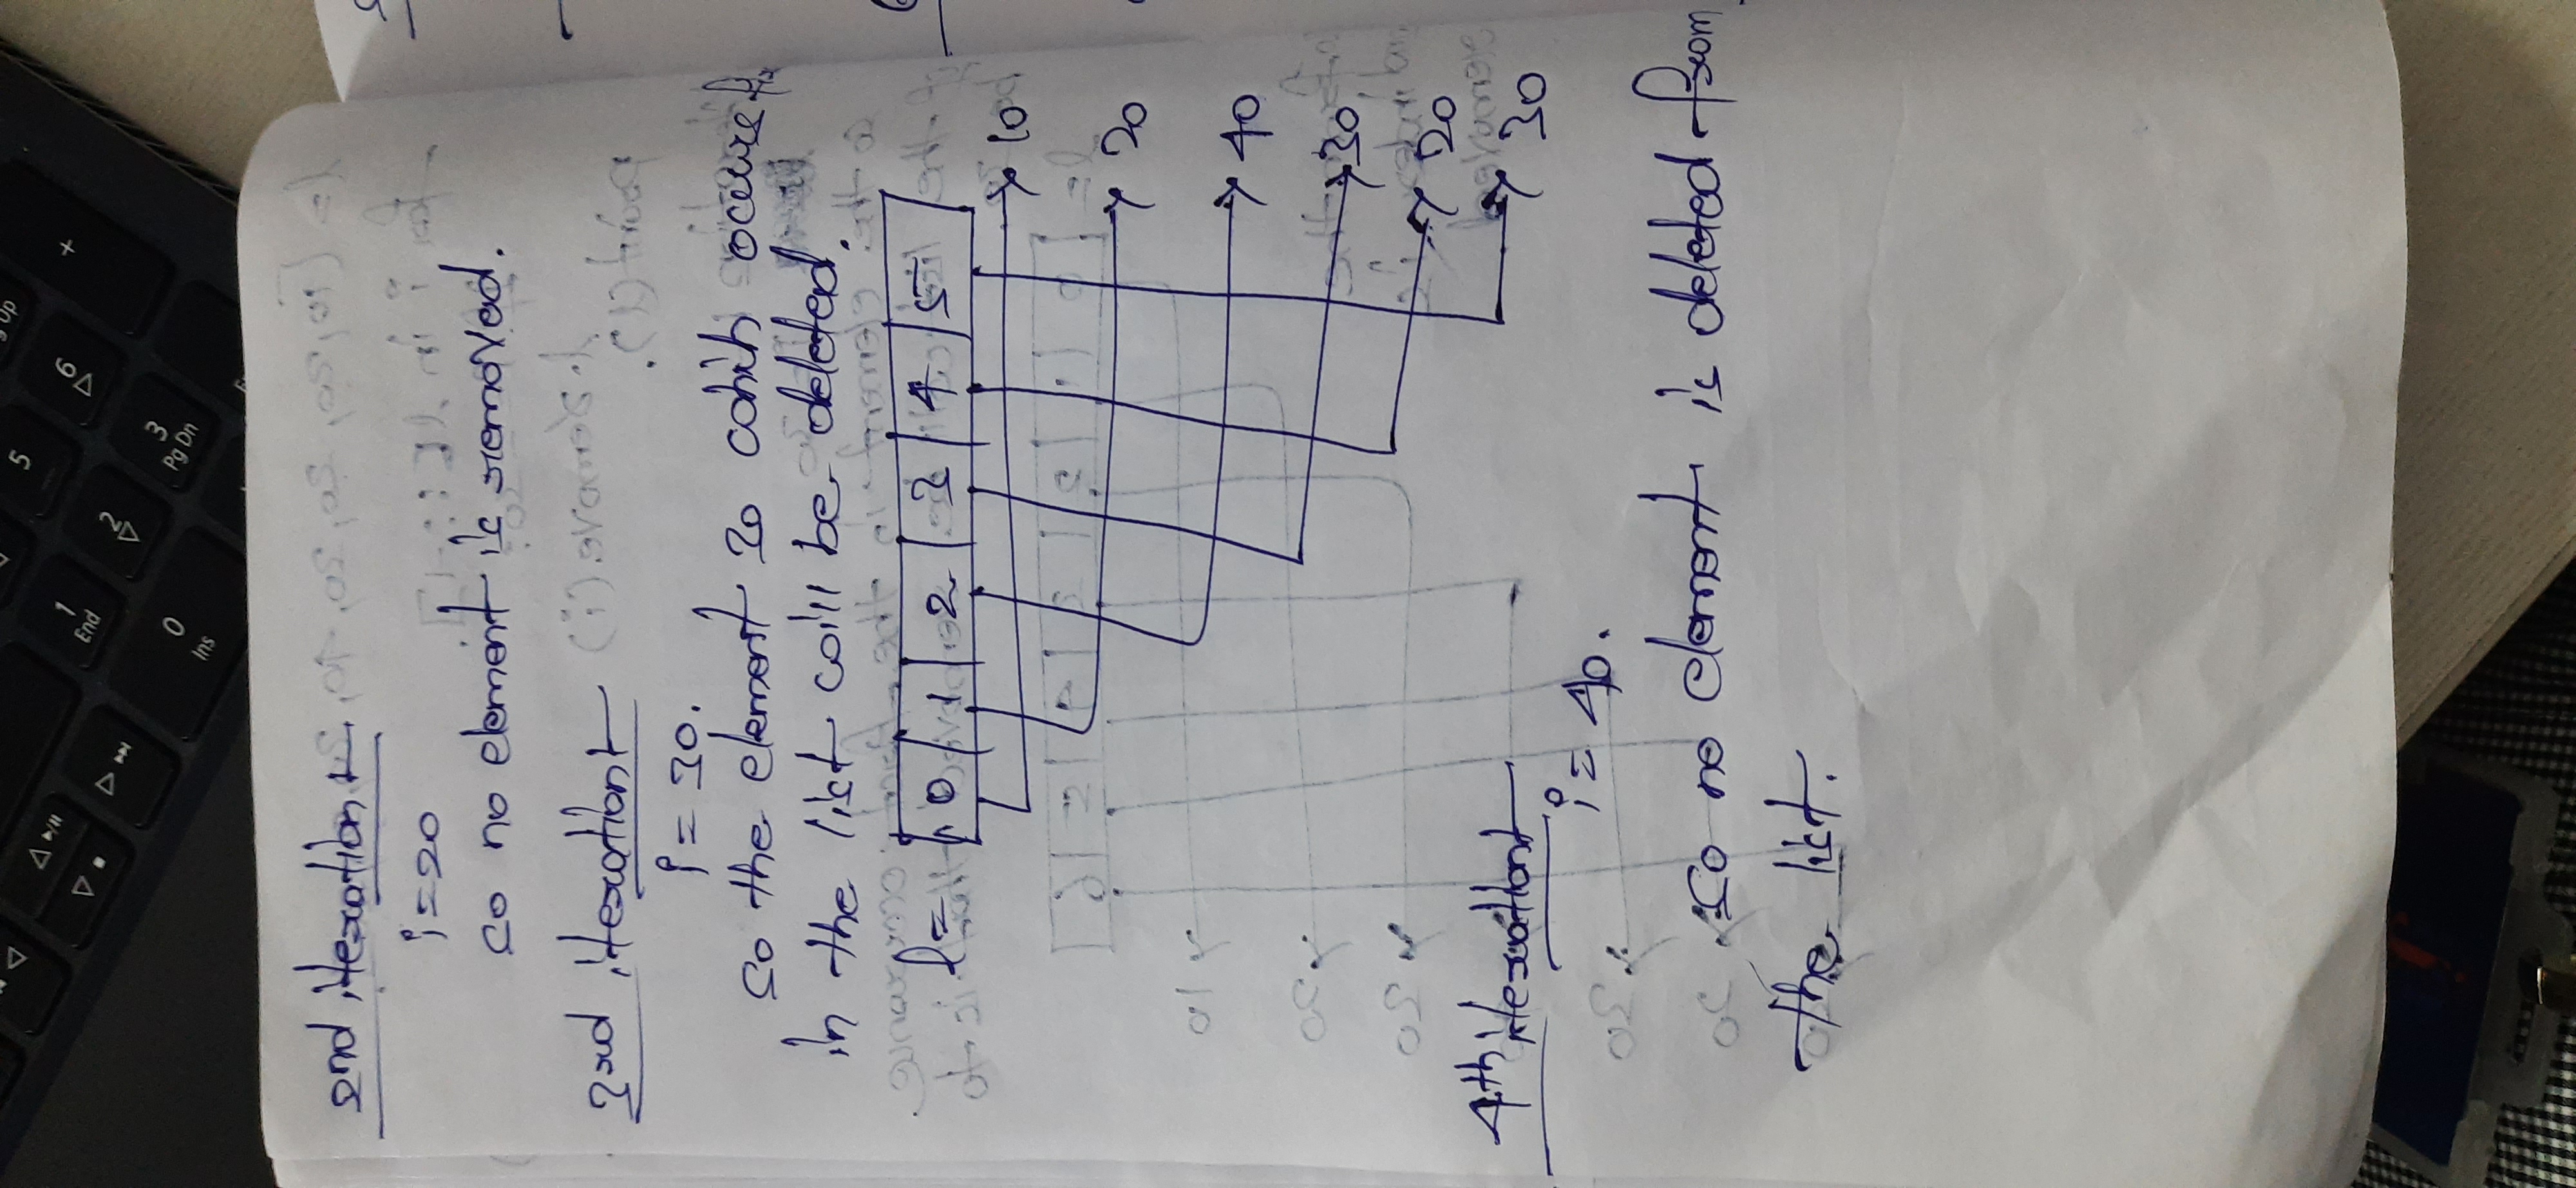 5
6
+
1
End
2
3
Pg Dn
0
Ins
2nd iteration:-
i=20
so no element is removed.
3rd iteration:-
i = 30.
so the element 30 which occurs
in the list will be deleted.
l= 0 1 2 3 4 5
10
20
40
30
20
30
4th iteration:-
i= 40.
so no element is deleted from
the list.